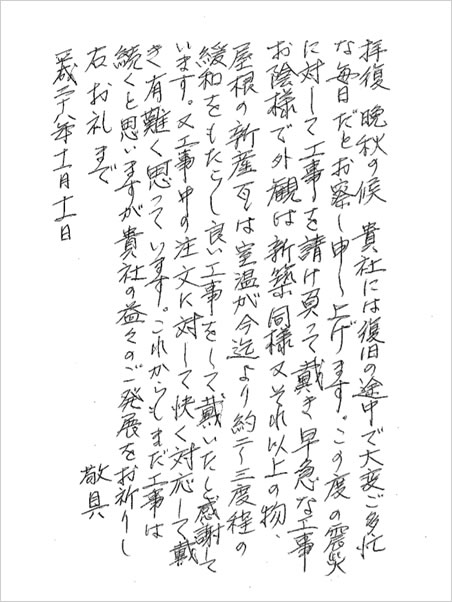 拝復 晩秋の候 貴社には復旧の途中で大変ご多忙
な毎日だとお察し申し上げます。この度の震災
に対して工事を請け負って戴き早急な工事
お陰様で外観は新築同様又それ以上の物、
屋根の新産瓦は室温が今迄より約二〜三度程の
緩和をもたらし良い工事をして戴いたと感謝して
います。又工事中の注文に対して快く対応して戴
き有難く思っています。これからもまだ工事は
続くと思いますが貴社の益々のご発展をお祈りし
右 お礼まで
敬具
平成二十八年十一月十一日